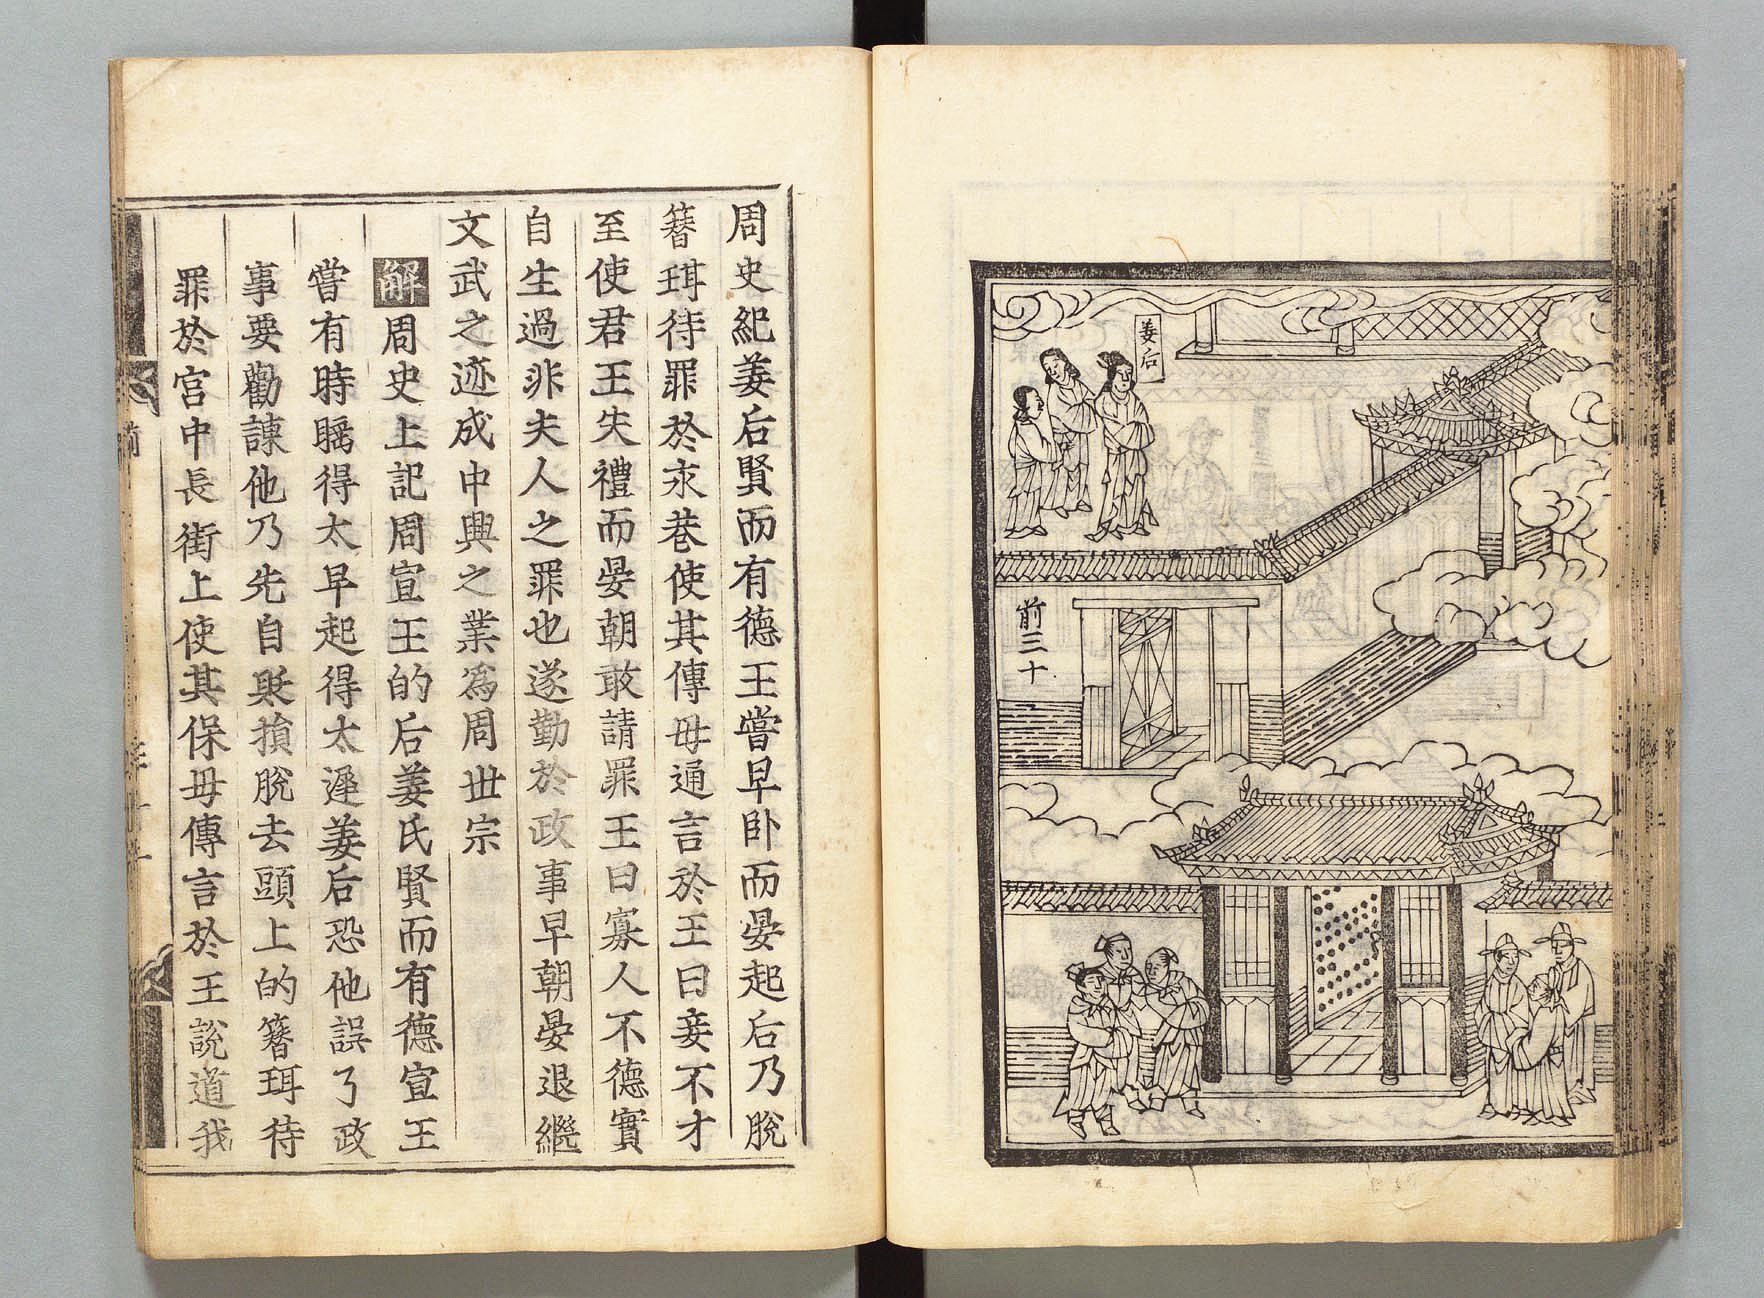 姜后
前三十
周史紀姜后賢而有德王嘗早卧而晏起后乃脫
簪珥待罪於永巷使其傳母通言於王曰妾不才
至使君王失禮而晏朝敢請罪王曰寡人不德實
自生過非夫人之罪也遂勤於政事早朝晏退繼
文武之迹成中興之業為周世宗
解周史上記周宣王的后姜氏賢而有德宣王
嘗有時睡得太早起得太遲姜后恐他誤了政
事要勸諫他乃先自貶損脫去頭上的簪珥待
罪於宮中長街上使其保母傳言於王說道我